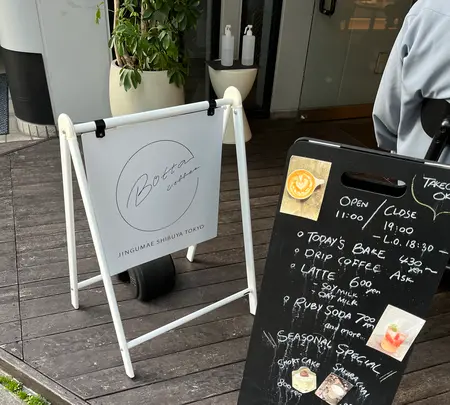 Botta
coffee
JINGUMAE SHIBUYA TOKYO
TAKEO
OK
OPEN / CLOSE
11:00 19:00
- L.O. 18:30 -
TODAY'S BAKE 430 yen~
DRIP COFFEE ASK
LATTE 600 yen
- SOY MILK
- OAT MILK
RUBY SODA 700 yen
and more...
SEASONAL SPECIAL
SHORT CAKE